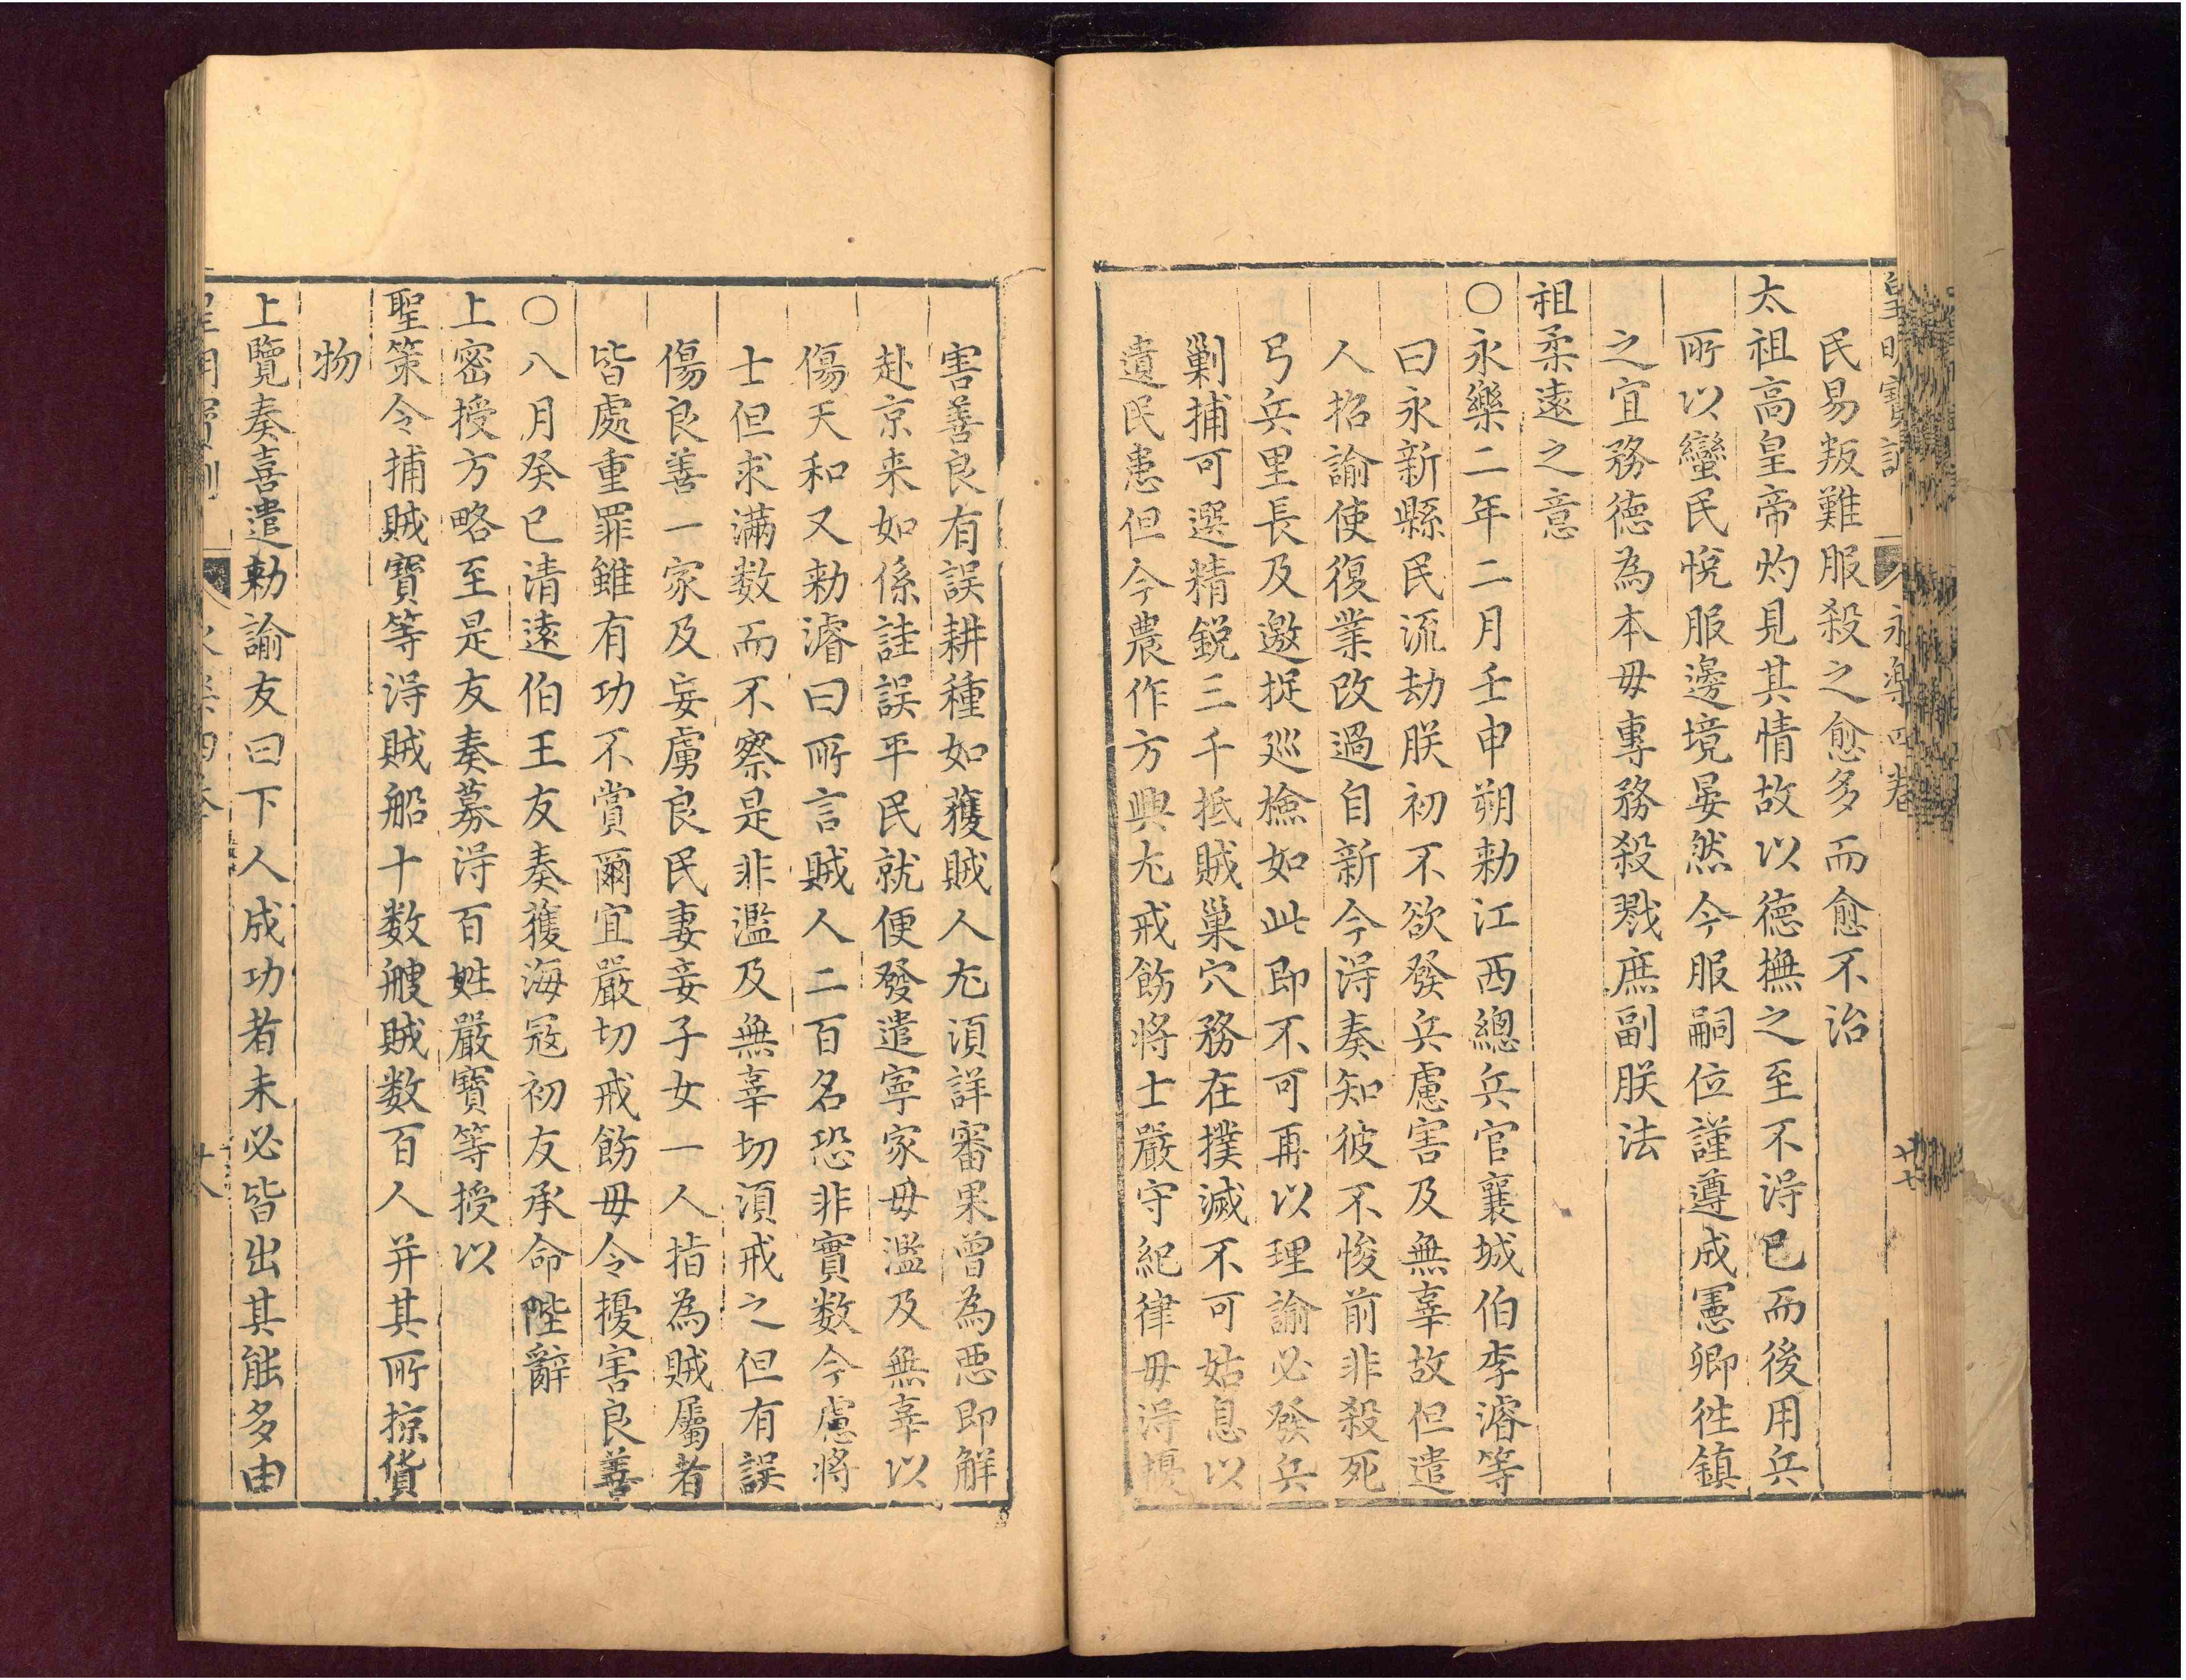 皇明寶訓 永樂四卷 廿七
民易叛難服殺之愈多而愈不治
太祖高皇帝灼見其情故以德撫之至不淂已而後用兵
所以蠻民悅服邊境晏然今服嗣位謹遵成憲卿徃鎮
之宜務德為本毋專務殺戮庶副朕法
祖柔遠之意
○永樂二年二月壬申朔勅江西總兵官襄城伯李濬等
曰永新縣民流劫朕初不欲發兵慮害及無辜故但遣
人招諭使復業改過自新今淂奏知彼不悛前非殺死
弓兵里長及邀捉廵檢如此即不可再以理諭必發兵
剿捕可選精銳三千抵賊巢穴務在撲滅不可姑息以
遺民患但今農作方興尤戒飭將士嚴守紀律毋淂擾
害善良有誤耕種如獲賊人尤湏詳審果曾為惡即解
赴京来如係詿誤平民就便發遣寧家毋濫及無辜以
傷天和又勅濬曰所言賊人二百名恐非實数今慮將
士但求滿数而不察是非濫及無辜切湏戒之但有誤
傷良善一家及妄虜良民妻妾子女一人指為賊屬者
皆處重罪雖有功不賞爾宜嚴切戒飭毋令擾害良善
○八月癸巳清遠伯王友奏獲海冦初友承命陛辭
上密授方略至是友奏募淂百姓嚴寶等授以
聖策令捕賊寶等淂賊船十数艘賊数百人并其所掠貨
物
上覽奏喜遣勅諭友曰下人成功者未必皆出其能多由